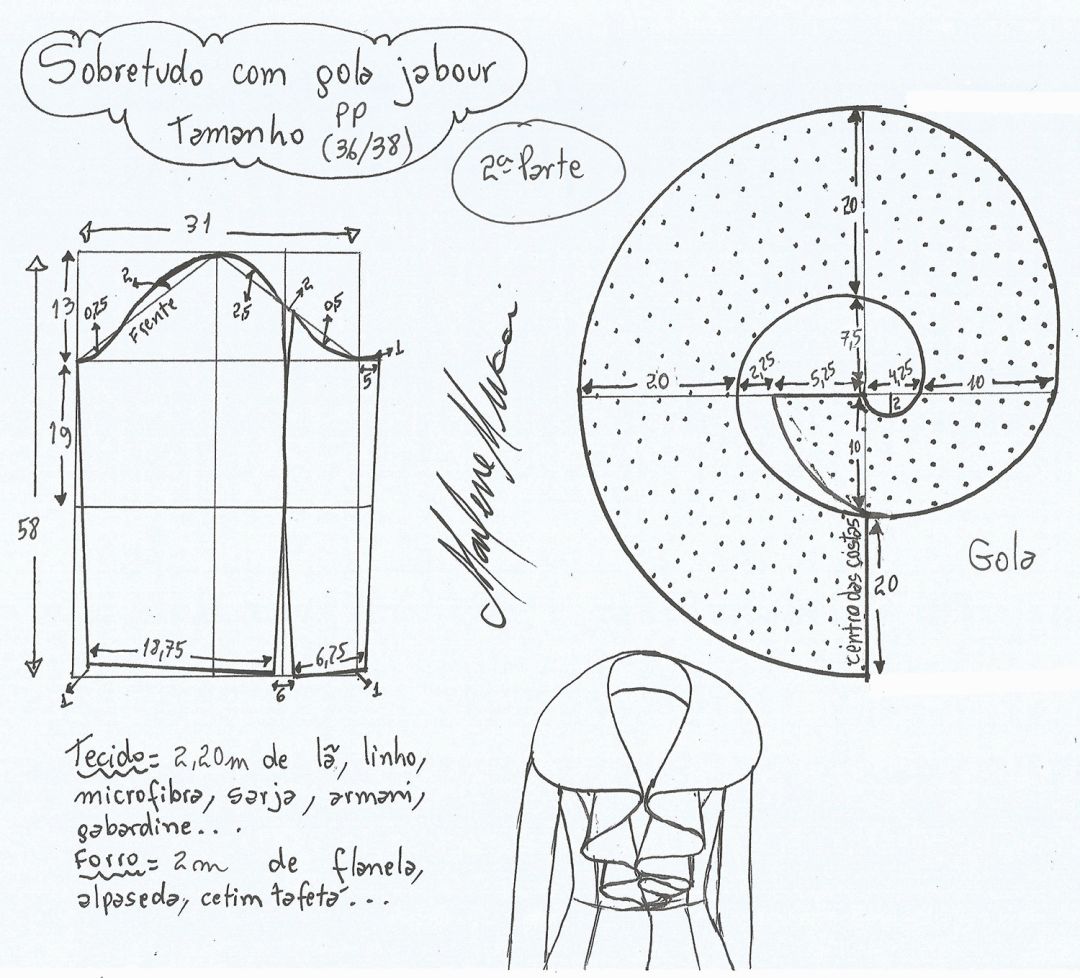 Sobretudo com gola jabour
Tamanho PP
(36/38)
2ª Parte
31
58
13
19
0,25
2
Frente
2,5
2
0,5
1
5
18,75
6,75
1
6
1
20
7,5
20
2,25
5,25
4,25
10
2
10
centro das costas
20
Gola
Marlene Mukai
Tecido = 2,20m de lã, linho,
microfibra, sarja, armani,
gabardine...
Forro = 2m de flanela,
alpaseda, cetim tafetá...